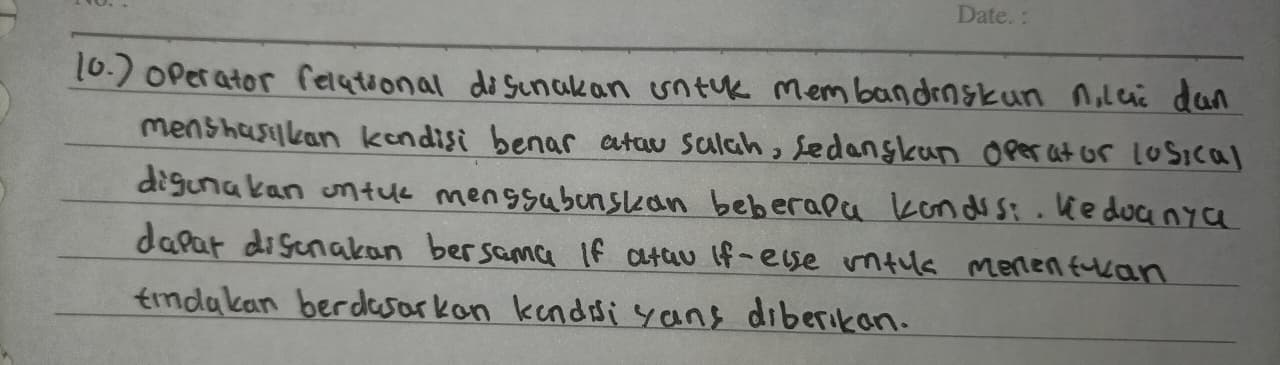 Date. :
10.) Operator relational digunakan untuk membandingkan nilai dan
menghasilkan kondisi benar atau salah, sedangkan operator logical
digunakan untuk menggabungkan beberapa kondisi. Keduanya
dapat digunakan bersama if atau if-else untuk menentukan
tindakan berdasarkan kondisi yang diberikan.